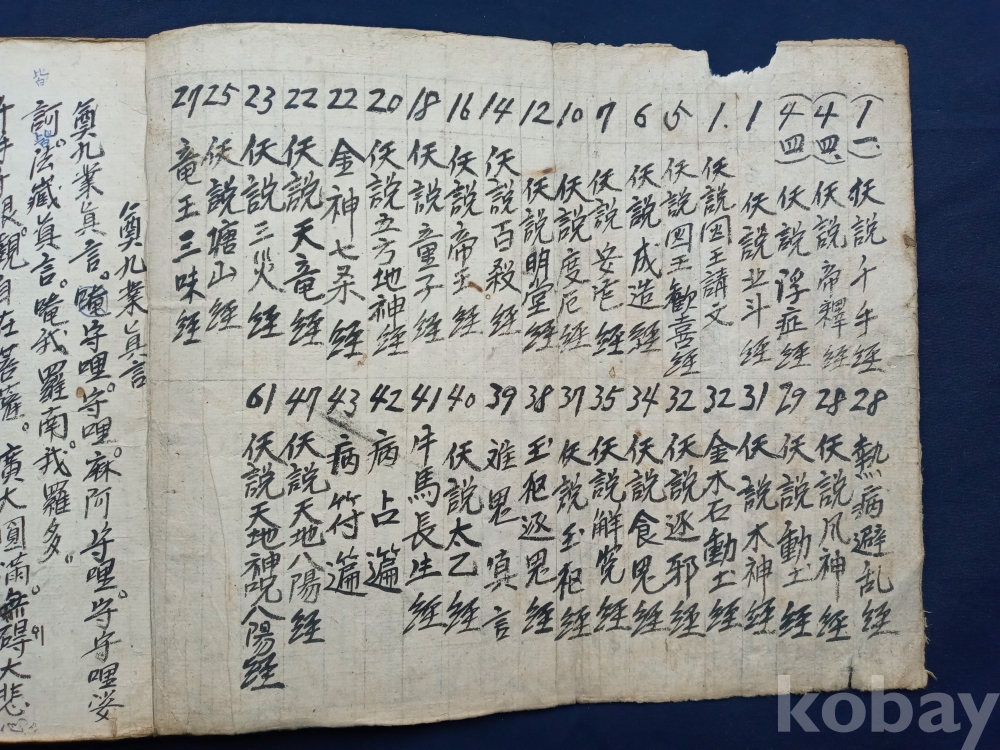 1 (一) 仸說千手經
4 (四) 仸說帝釋經
4 (四) 仸說浮症經
1 仸說北斗經
1. 仸說四王講文
5 仸說四王歓喜經
6 仸說成造經
7 仸說安宅經
10 仸說度厄經
12 仸說明堂經
14 仸說百殺經
16 仸說帝王經
18 仸說童子經
20 仸說五方地神經
22 金神七杀經
22 仸說天竜經
23 仸說三災經
25 仸說塘山經
27 竜王三昧經
28 熱病避乱經
28 仸說风神經
29 仸說動土經
31 仸說木神經
32 金木石動土經
32 仸說逐邪經
34 仸說食鬼經
35 仸說解冤經
37 仸說玉枢經
38 玉枢逐鬼經
39 逐鬼真言
40 仸說太乙經
41 牛馬長生經
42 病占篇
43 病符篇
47 仸說天地八陽經
61 仸說天地神呪八陽經
奠九業眞言
奠九業眞言。唵守哩。守哩。麻阿守哩。守。守哩娑
訶。法藏眞言。唵我羅南。我羅多〃
皆
千手千眼觀自在菩薩。廣大圓滿。無碍大悲心
91
kobay